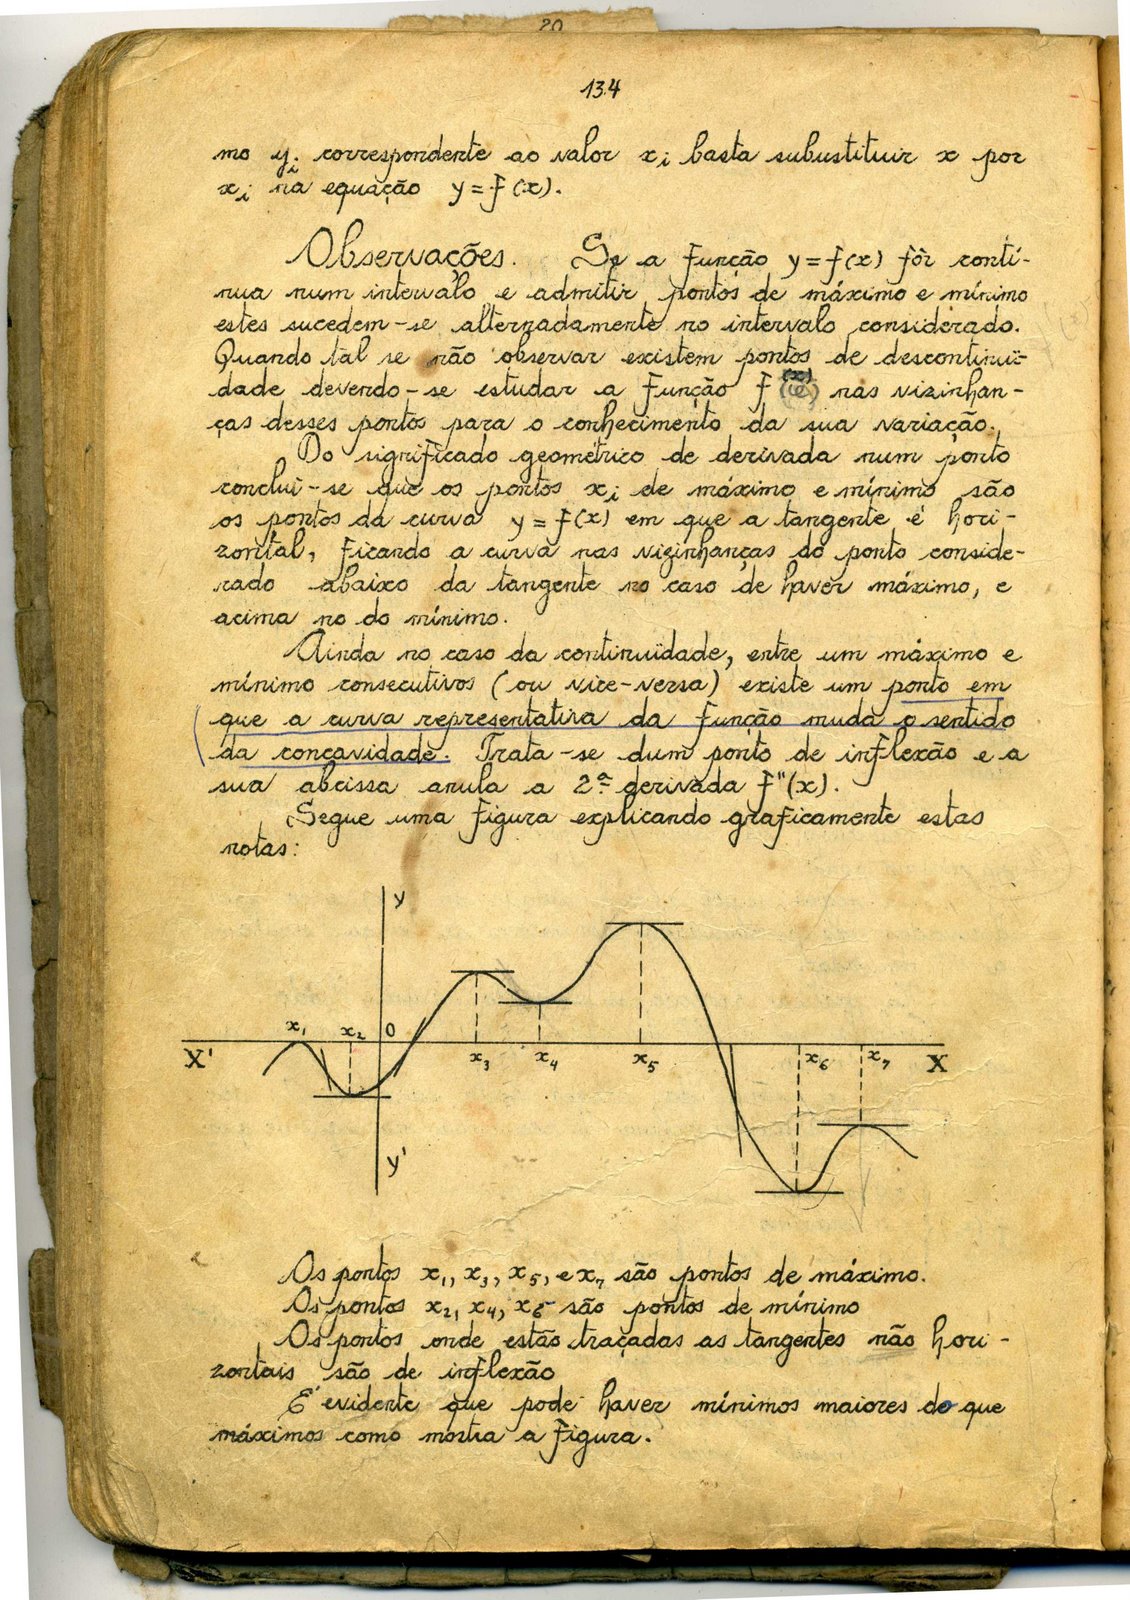 20
134
mo yi correspondente ao valor xi basta subustituir x por
xi na equação y = f(x).
Observações. Se a função y = f(x) fôr contí-
nua num intervalo e admitir pontos de máximo e mínimo
estes sucedem-se alternadamente no intervalo considerado.
Quando tal se não observar existem pontos de descontinuï-
dade devendo-se estudar a função f (x) nas vizinhan-
ças desses pontos para o conhecimento da sua variação.
Do significado geométrico de derivada num ponto
conclui-se que os pontos xi de máximo e mínimo são
os pontos da curva y = f(x) em que a tangente é hori-
zontal, ficando a curva nas vizinhanças do ponto conside-
rado abaixo da tangente no caso de haver máximo, e
acima no do mínimo.
Ainda no caso da continuïdade, entre um máximo e
mínimo consecutivos (ou vice-versa) existe um ponto em
que a curva representativa da função muda o sentido
da concavidade. Trata-se dum ponto de inflexão e a
sua abcissa anula a 2ª derivada f"(x).
Segue uma figura explicando graficamente estas
notas:
y
x1 x2 O
X' x3 x4 x5 x6 x7 X
y'
Os pontos x1, x3, x5, e x7 são pontos de máximo.
Os pontos x2, x4, x6 são pontos de mínimo
Os pontos onde estão traçadas as tangentes não hori-
zontais são de inflexão
É evidente que pode haver mínimos maiores do que
máximos como mostra a figura.